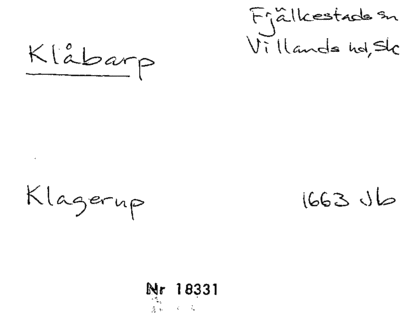 Fjälkestads sn
Klåbarp
Villands hd, Sk
Klagerup
1663 Jb
Nr 18331